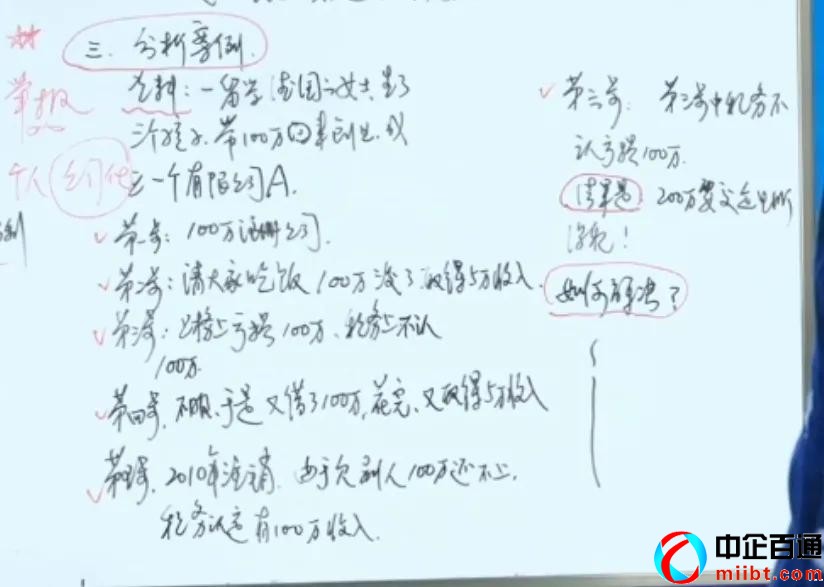 三. 分析案例.
老料: 一留学法国之女士, 生了
三个孩子, 带100万回来创业, 成
立一个有限公司A.
举报
个人
公司化
第一步: 100万注册公司.
第二步: 请大家吃饭 100万没了. 取得5万收入.
第三步: 账上亏损100万, 税务上不认
100万.
第四步, 不服, 于是又借了100万, 花完, 又取得5万收入
第五步, 2010年注销. 由于欠别人100万还不上.
税务认定有100万收入.
第六步: 第三步中税务不
认亏损100万.
结果是: 200万要交企业所
得税!
如何解决?
中企百通
miibt.com